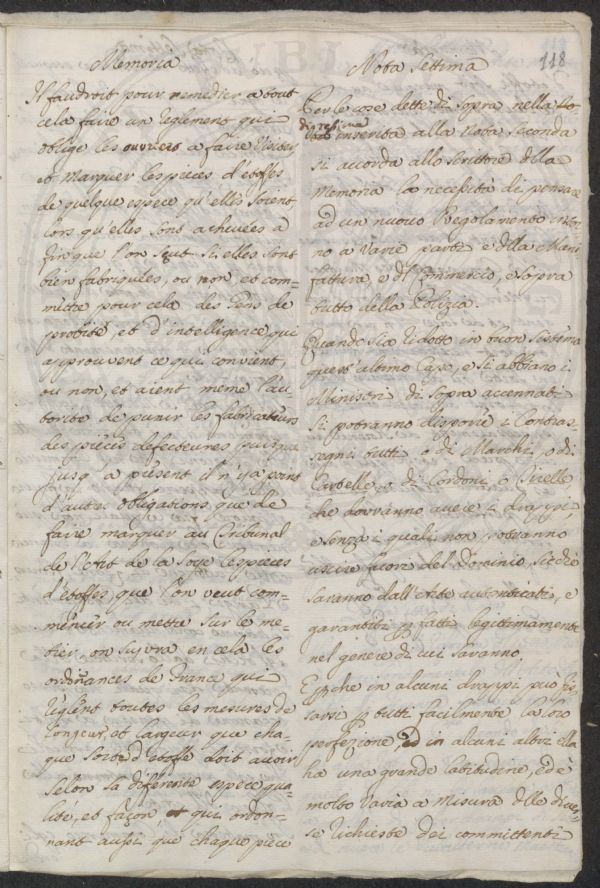 118
Memoria
Il faudroit pour remedier a tout
cela faire un reglement qui
oblige les ouvriers a faire visiter,
et Marquer les pieces d'etoffes
de quelque espece qu'elles soient
lors qu'elles sont achevées à
fin que l'on sçut si elles sont
bien fabriquées, ou non, et com-
mette pour cela des Gens de
probité, et d'intelligence qui
approuvent ce qui convient,
ou non, et aient meme l'au
torité de punir les fabricateurs
des pieces defecteuses puisque
jusq'a present il n'y a point
d'autre obligations que de
faire marquer au Tribunal
de l'Art de la Soye les pieces
d'étoffes que l'on veut com-
mencer ou mettre sur le me-
tier, on suyvra en cela les
ordonances de France qui
règlent toutes les mesures de
longeur et largeur que cha-
que sorte d'étoffe doit avoir
selon sa diférente espece qua-
lité, et façon, et qui ordon-
nant aussi que chaque piece
Nota Settima
Per le cose dette di sopra nella
digressione inserita alla Nota seconda
si accorda allo Scrittore della
Memoria la necessità di pensare
ad un nuovo Regolamento inter
no a varie parti e della Mani
fattura, e del Commercio, e sopra
tutto della Polizia.
Quando sia ridotto in buon sistema
quest'ultimo Capo, e si abbiano i
Ministri di sopra accennati
si potranno disporre i Contras-
segni tutti o di Marchi, o di
Tabelle, o di Cordoni, o Cirelle
che dovranno avere i drappi,
e senza i quali non potranno
uscire fuori del Dominio, sicchè
saranno dall'Arte autenticati, e
garantiti p fatti legittimamente
nel genere di cui saranno.
E pche in alcuni drappi può fis
sarsi p tutti facilmente la loro
perfezione, ed in alcuni altri ella
ha una grande latitudine, ed è
molto varia a misura delle diver
se richieste dei committenti